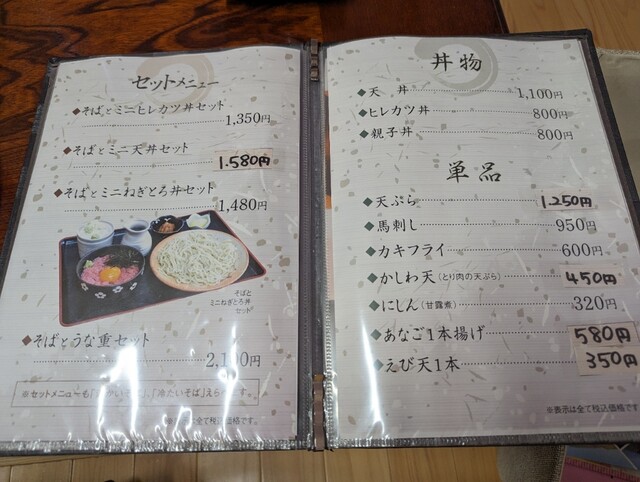 セットメニュー
◆そばとミニヒレカツ丼セット
1,350円
◆そばとミニ天丼セット
1.580円
◆そばとミニねぎとろ丼セット
1,480円
そばと
ミニねぎとろ丼
セット
◆そばとうな重セット
※セットメニューも「温かいそば」、「冷たいそば」えらべます。
※表示は全て税込価格です。
丼物
◆天 丼 1,100円
◆ヒレカツ丼 800円
◆親子丼 800円
単品
◆天ぷら 1.250円
◆馬刺し 950円
◆カキフライ 600円
◆かしわ天(とり肉の天ぷら) 450円
◆にしん(甘露煮) 320円
◆あなご1本揚げ 580円
◆えび天1本 350円
※表示は全て税込価格です。